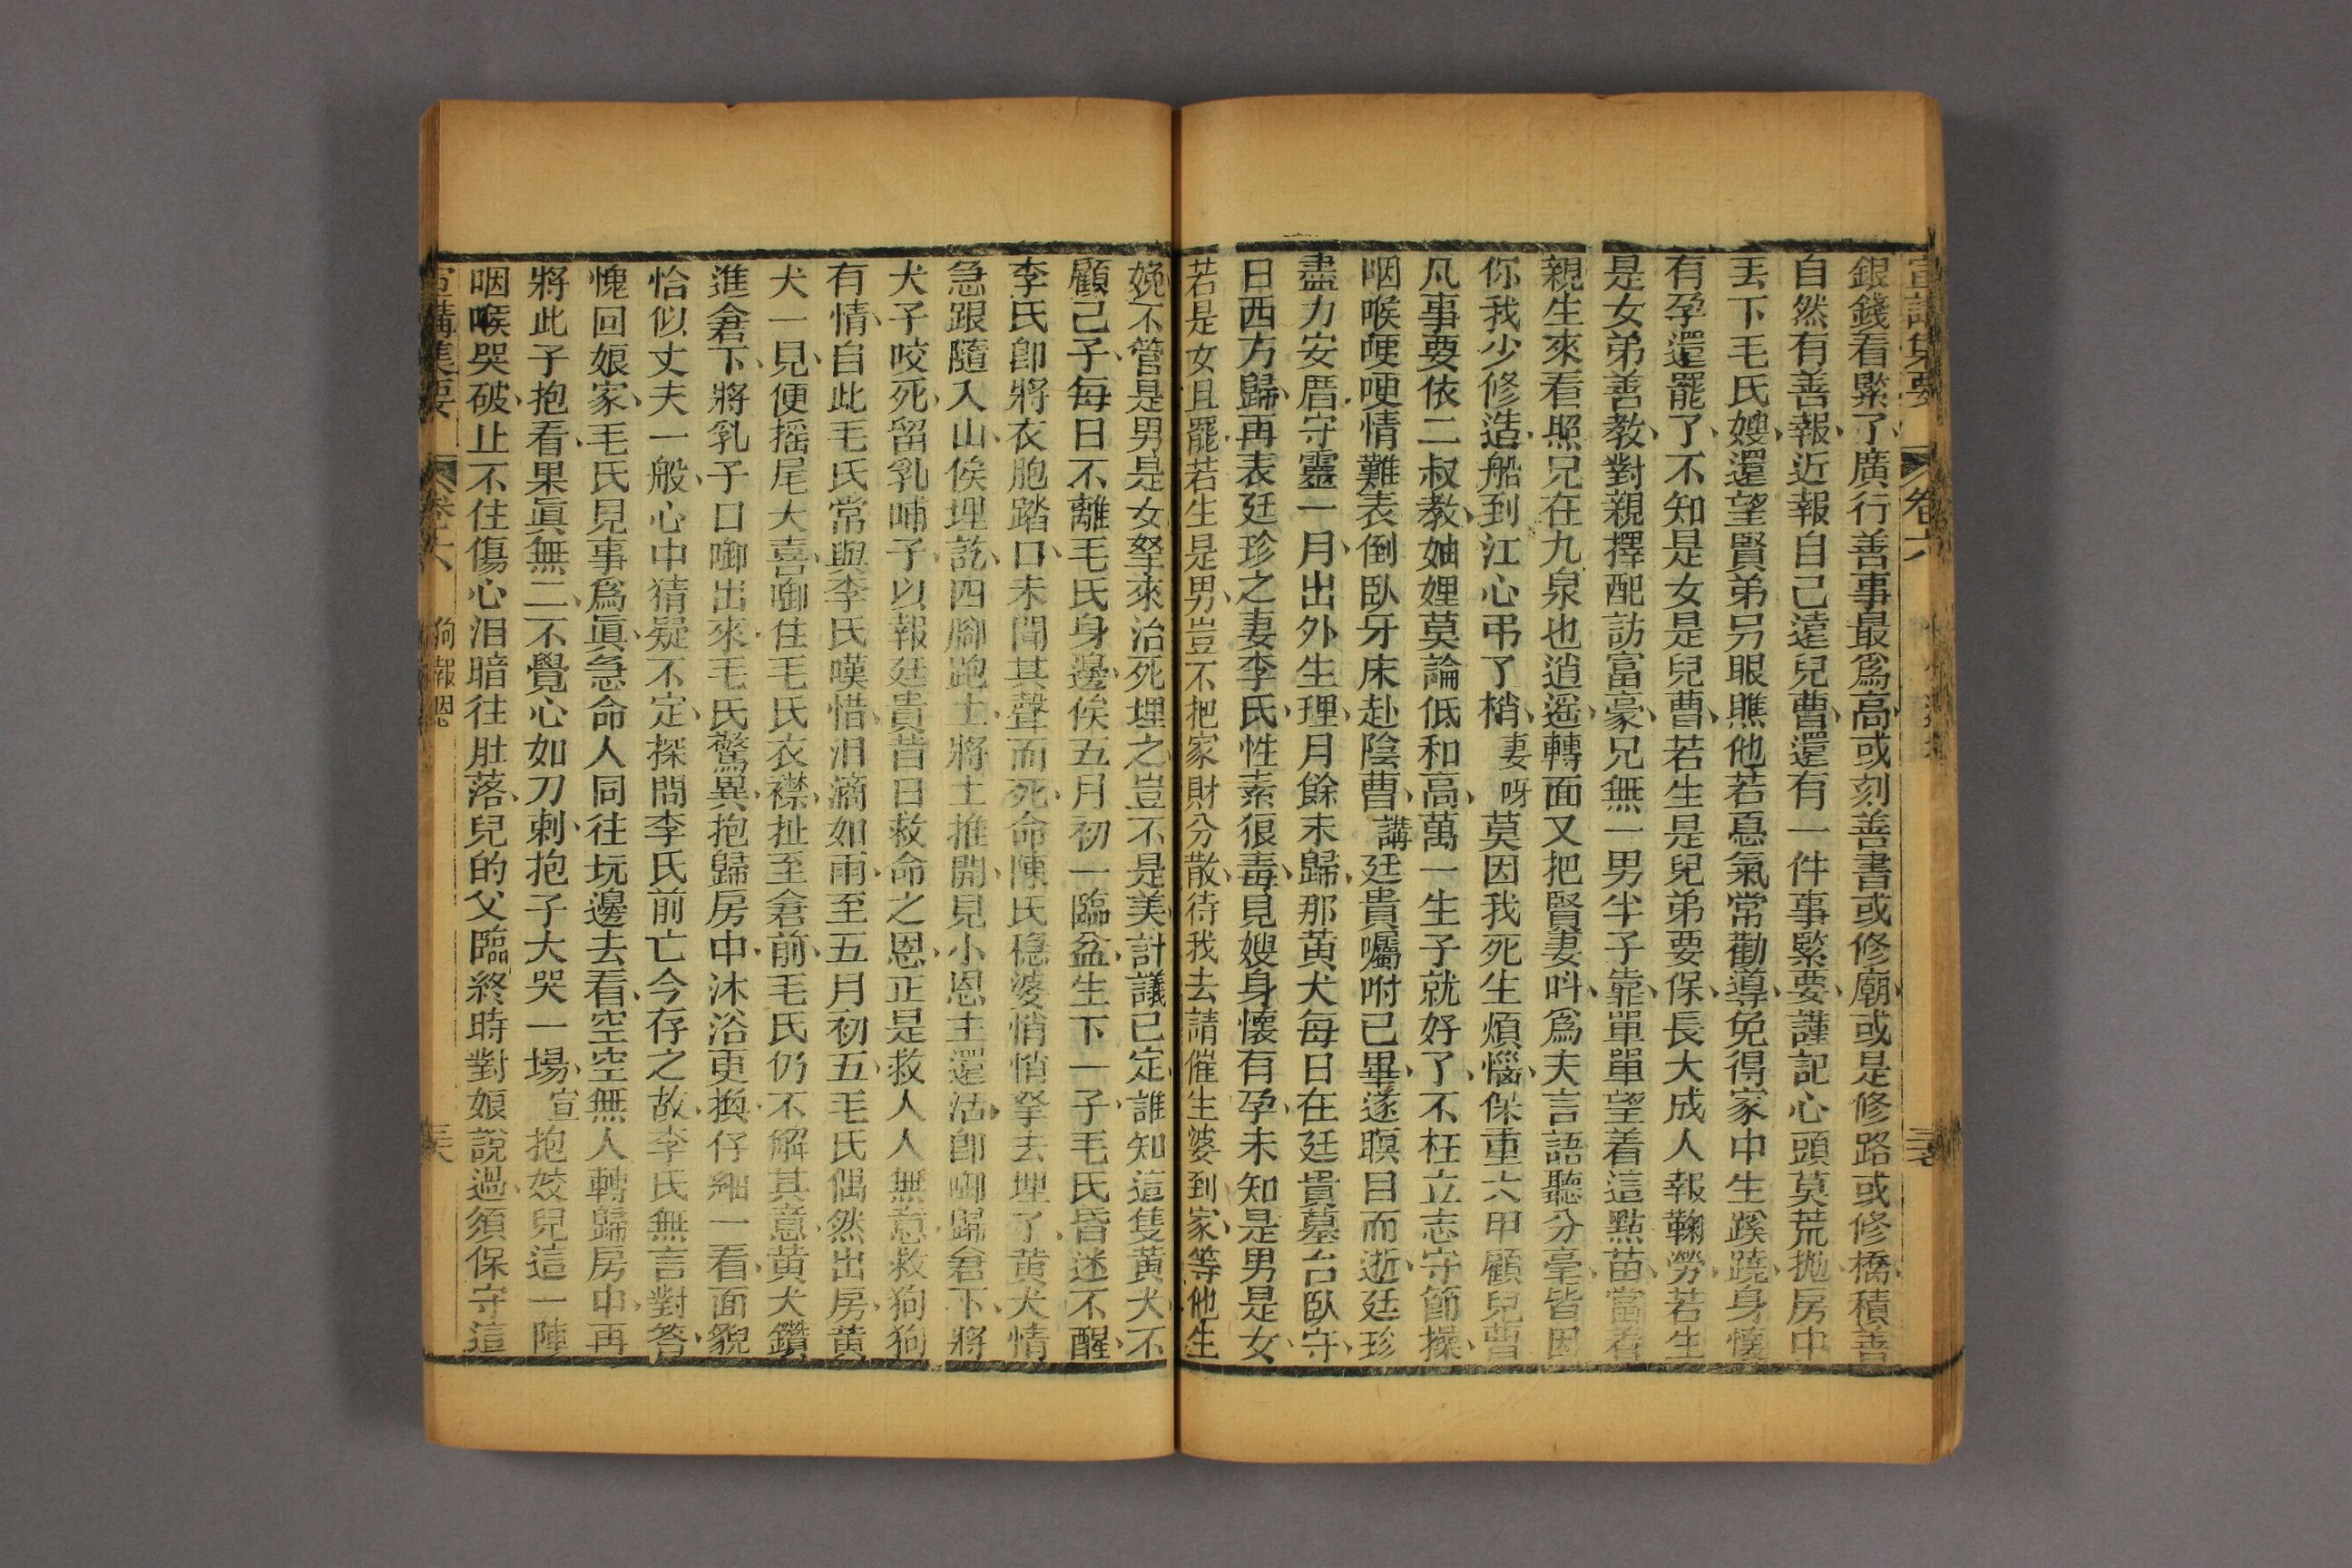 宣講集要 卷六
銀錢看緊了廣行善事最爲高或刻善書或修廟或是修路或修橋積善
自然有善報近報自己遠兒曹還有一件事緊要謹記心頭莫荒拋房中
丟下毛氏嫂還望賢弟另眼瞧他若慪氣常勸導免得家中生蹊蹺身懷
有孕還罷了不知是女是兒曹若生是兒弟要保長大成人報鞠勞若生
是女弟善教對親擇配訪富豪兄無一男半子靠單單望着這點苗當着
親生來看照兄在九泉也逍遙轉面又把賢妻呌爲夫言語聽分毫皆因
你我少修造船到江心弔了梢妻呀莫因我死生煩惱保重六甲顧兒曹
凡事要依二叔教妯娌莫論低和高萬一生子就好了不枉立志守節操
咽喉哽哽情難表倒臥牙床赴陰曹講廷貴囑咐已畢遂瞑目而逝廷珍
盡力安厝守靈一月出外生理月餘未歸那黃犬每日在廷貴墓台臥守
日西方歸再表廷珍之妻李氏性素很毒見嫂身懷有孕未知是男是女
若是女且罷若生是男豈不把家財分散待我去請催生婆到家等他生
娩不管是男是女拏來治死埋之豈不是美計議已定誰知這隻黃犬不
顧己子每日不離毛氏身邊俟五月初一臨盆生下一子毛氏昏迷不醒
李氏卽將衣胞踏口未聞其聲而死命陳氏穩婆悄悄拏去埋了黃犬情
急跟隨入山俟埋訖四腳跑土將土推開見小恩主還活卽啣歸倉下將
犬子咬死留乳哺子以報廷貴昔日救命之恩正是救人人無意救狗狗
有情自此毛氏常與李氏嘆惜泪滴如雨至五月初五毛氏偶然出房黃
犬一見便摇尾大喜啣住毛氏衣襟扯至倉前毛氏仍不解其意黃犬鑽
進倉下將乳子口啣出來毛氏驚異抱歸房中沐浴更換仔細一看面貌
恰似丈夫一般心中猜疑不定探問李氏前亡今存之故李氏無言對答
愧回娘家毛氏見事爲眞急命人同往坑邊去看空空無人轉歸房中再
將此子抱看果眞無二不覺心如刀刺抱子大哭一場宣抱姣兒這一陣
咽喉哭破止不住傷心泪暗往肚落兒的父臨終時對娘說過須保守這
宣講集要 卷六 狗報恩